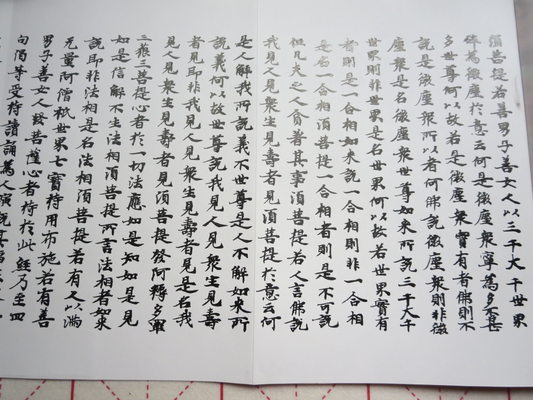 須菩提若善男子善女人以三千大千世界
碎為微塵於意云何是微塵衆寧為多不甚
多世尊何以故若是微塵衆實有者佛則不
說是微塵衆所以者何佛說微塵衆則非微
塵衆是名微塵衆世尊如來所說三千大千
世界則非世界是名世界何以故若世界實有
者則是一合相如來說一合相則非一合相
是名一合相須菩提一合相者則是不可說
但凡夫之人貪著其事須菩提若人言佛說
我見人見衆生見壽者見須菩提於意云何
是人解我所說義不世尊是人不解如來所
說義何以故世尊說我見人見衆生見壽
者見即非我見人見衆生見壽者見是名我
見人見衆生見壽者見須菩提發阿耨多羅
三藐三菩提心者於一切法應如是知如是見
如是信解不生法相須菩提所言法相者如來
說即非法相是名法相須菩提若有人以滿
无量阿僧祇世界七寶持用布施若有善
男子善女人發菩薩心者持於此經乃至四
句偈等受持讀誦為人演說